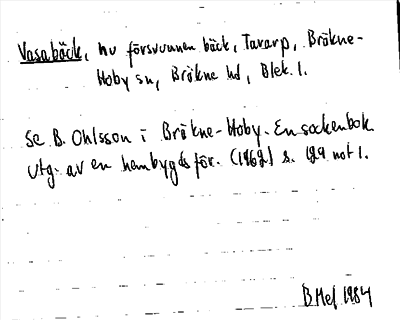 Vasabäck, nu försvunnen bäck, Tararp, Bräkne-
Hoby sn, Bräkne hd, Blek. l.
Se B. Ohlsson i Bräkne-Hoby. En sockenbok
utg. av en hembygdsför. (1962) s. 129 not 1.
B Hel 1984